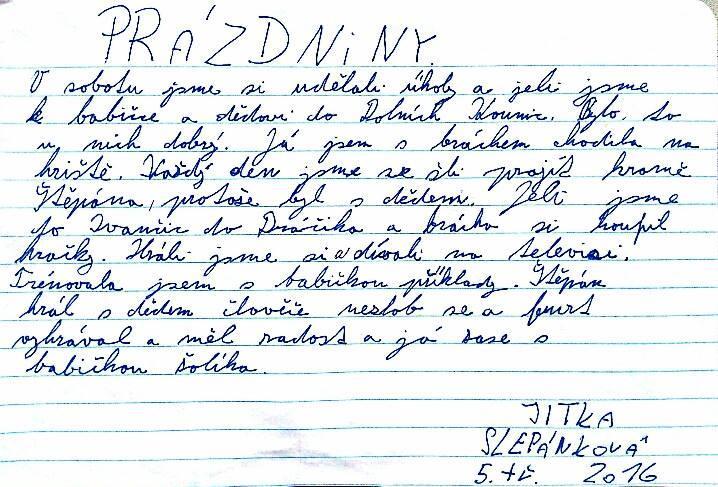 PRÁZDNiNY.
V sobotu jsme si udělali úkoly a jeli jsme
k babičce a dědovi do Dolních Kounic. Bylo to
u nich dobrý. Já jsem s bráchem chodila na
hriště. Každý den jsme se šli projít kromě
Štěpána, protože byl s dědem. Jeli jsme
do Ivančic do Dráčika a brácha si koupil
hračky. Hráli jsme si a dívali na televizi.
Trénovala jsem s babičkou příklady. Štěpán
hrál s dědem človče nezlob se a furt
vyhrával a měl radost a já zase s
babičkou šolika.
JITKA
SLEPÁNKOVÁ
5. tř. 2016